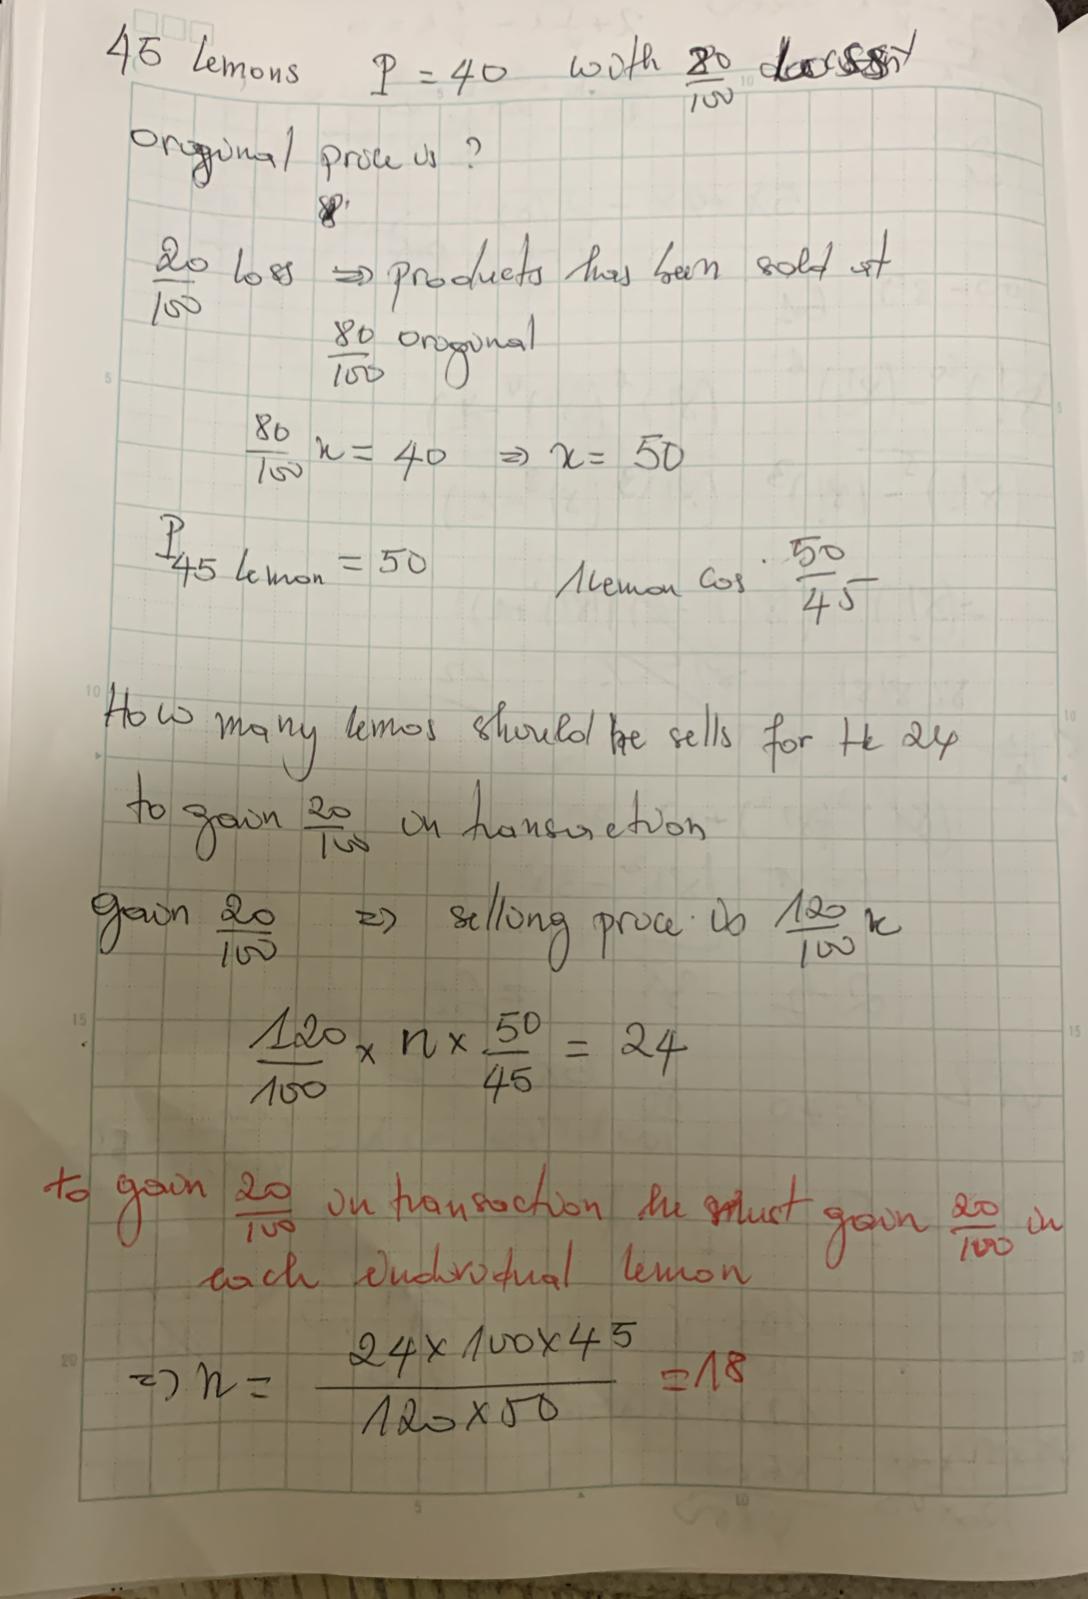 45 Lemons P = 40 with 20/100 loss
original price is ?
20/100 loss => products has been sold at
80/100 original
80/100 x = 40 => x = 50
P 45 lemon = 50 1 lemon cos 50/45
How many lemos should be sells for the 24
to gain 20/100 in transaction
gain 20/100 => selling price is 120/100 x
120/100 x n x 50/45 = 24
to gain 20/100 in transaction he must gain 20/100 in
each individual lemon
=> n = 24x100x45/120x50 = 18